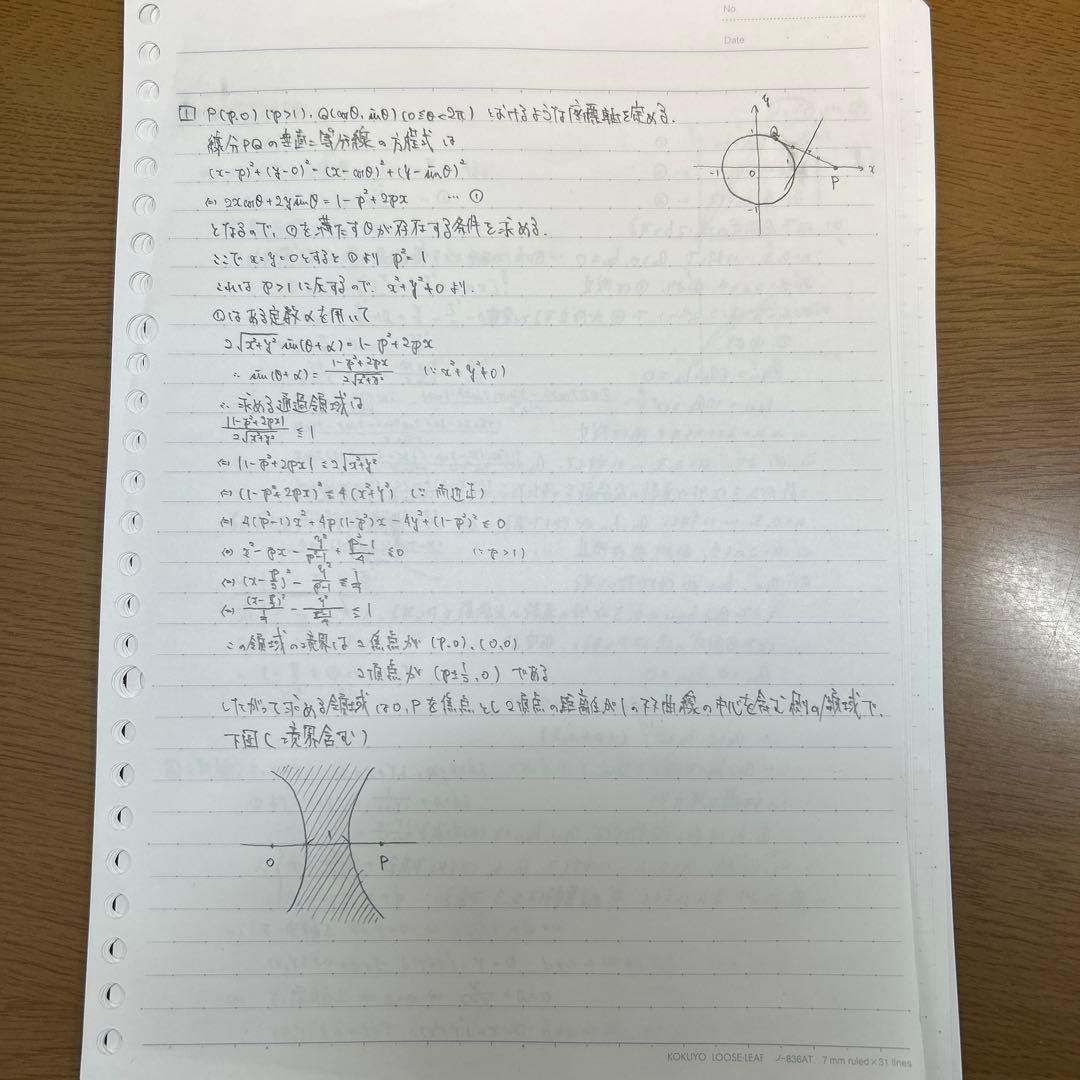 No.
Date
1 P(p,0) (p>1), Q(cosθ, sinθ) (0≦θ<2π) とおけるような座標軸を定める.
線分PQの垂直二等分線の方程式は
(x-p)²+(y-0)²=(x-cosθ)²+(y-sinθ)²
⇔ 2xcosθ+2ysinθ=1-p²+2px … ①
となるので, ①を満たすθが存在する条件を求める.
ここで x=y=0とすると①より p²=1
これは p>1に反するので, x²+y²≠0より.
①はある定数αを用いて
2√(x²+y²) sin(θ+α)=1-p²+2px
∴ sin(θ+α)=(1-p²+2px)/(2√(x²+y²)) (∵x²+y²≠0)
∴ 求める通過領域は
|1-p²+2px|/(2√(x²+y²)) ≦1
⇔ |1-p²+2px|≦2√(x²+y²)
⇔ (1-p²+2px)²≦4(x²+y²) (∵ 両辺正)
⇔ 4(p²-1)x²+4p(1-p²)x-4y²+(1-p²)²≦0
⇔ x²-px-y²/(p²-1)+(p²-1)/4≦0 (∵p>1)
⇔ (x-p/2)²-y²/(p²-1)≦1/4
⇔ (x-p/2)²/(1/4)-y²/((p²-1)/4)≦1
この領域の境界は 2焦点が (p,0), (0,0)
2頂点が (p±1/2,0) である
したがって求める領域は O,Pを焦点とし2頂点の距離が1の双曲線の中心を含む側の領域で,
下図(境界含む)
y
Q
-1
0
1
P
x
-1
O
1
P
KOKUYO LOOSE-LEAF ノ-836AT 7 mm ruled×31 lines